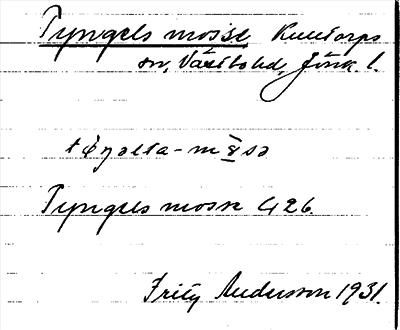 Tyngels mosse Kulltorps
sn, Västbo hd, Jönk. l.
Tyngels mosse G 26.
Fritz Andersson 1931.